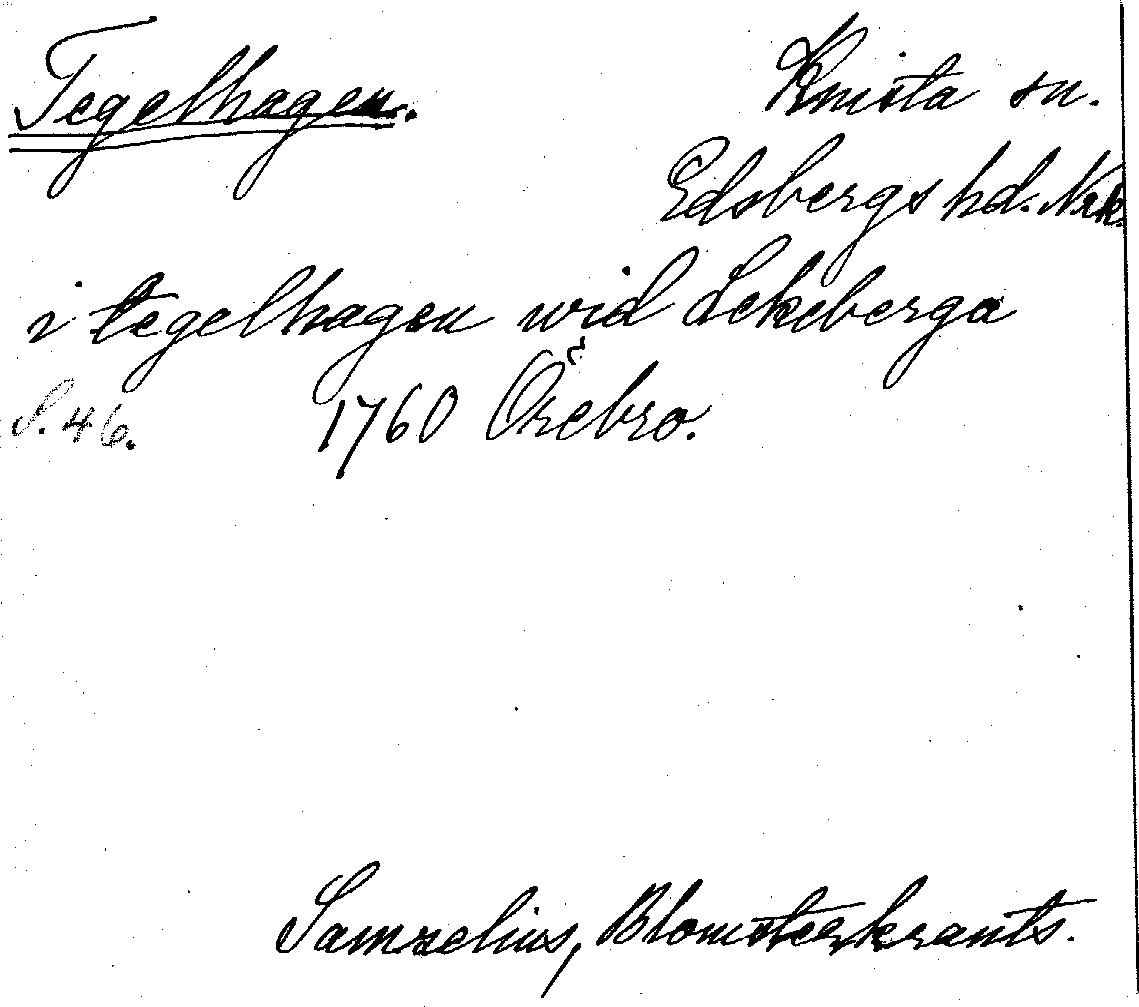 Tegelhagen.
Knista sn.
Edsbergs hd. Nrk.
i tegelhagen wid Lekeberga
S. 46. 1760 Örebro.
Samzelius, Blomsterkrants.